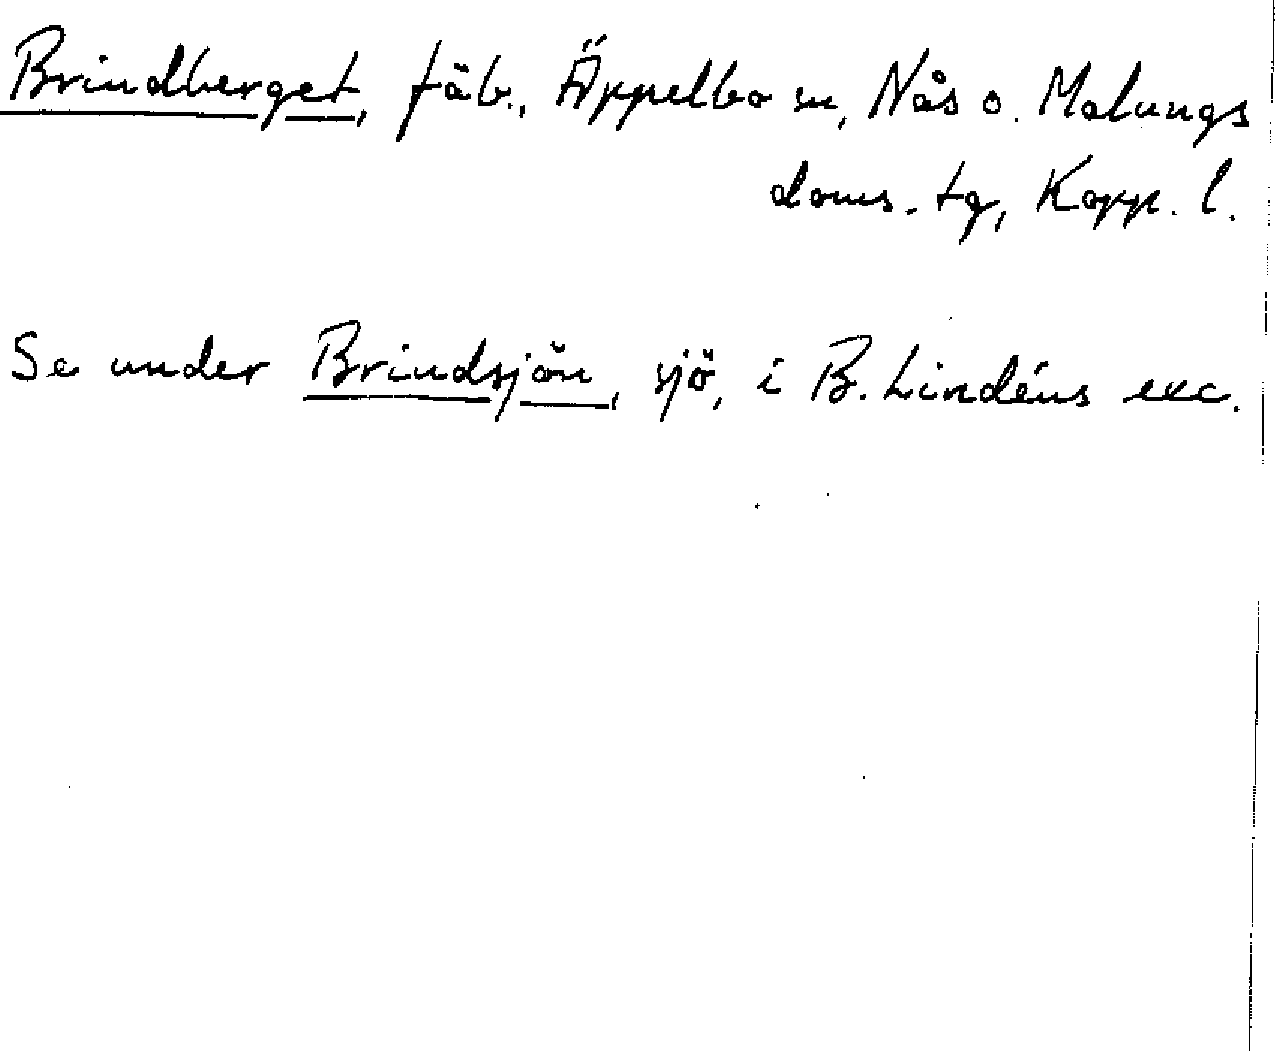 Brindberget, fäb., Äppelbo sn, Nås o. Malungs
doms. tg, Kopp. l.
Se under Brindsjön, sjö, i B. Lindéns exc.